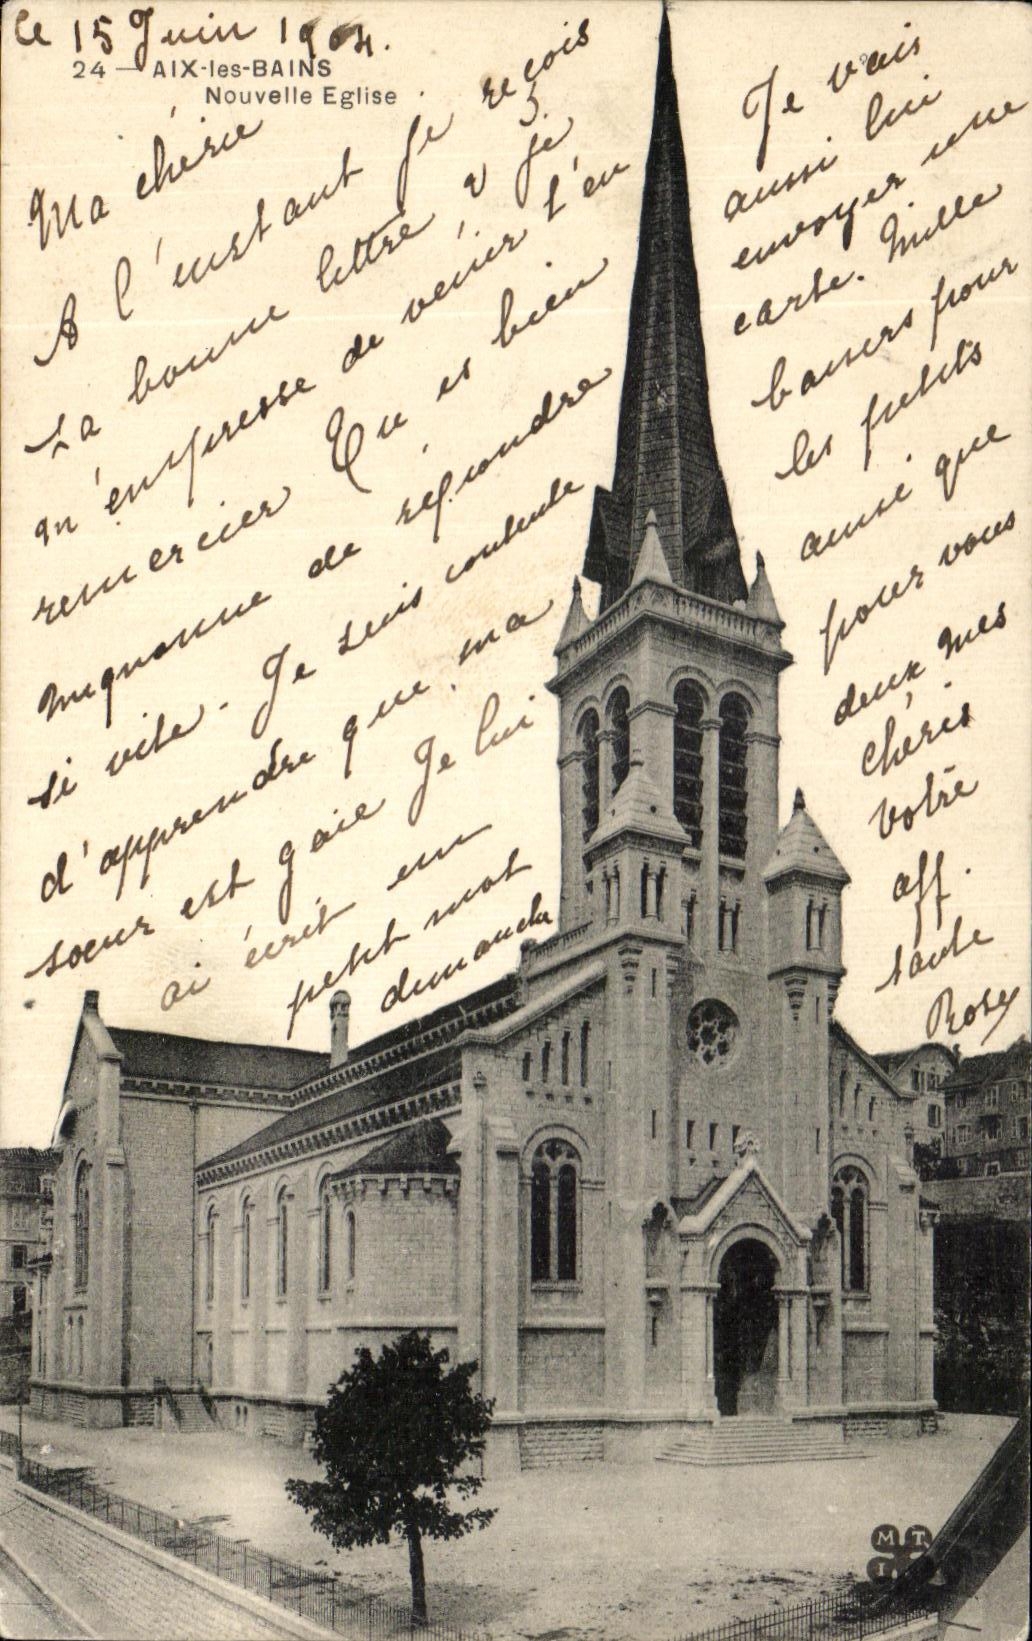 Le 15 Juin 1904.
24 — AIX-les-BAINS
Nouvelle Eglise
Ma chérie
A l'instant je reçois
ta bonne lettre & je
m'empresse de venir t'en
remercier Tu es bien
mignonne de répondre
si vite. Je suis contente
d'apprendre que ma
sœur est gaie Je lui
ai écrit un
petit mot
dimanche
Je vais
aussi lui
envoyer une
carte. Mille
baisers pour
les petits
ainsi que
pour vous
deux mes
chéris
Votre
aff.
tante
Rosy
M T
I L